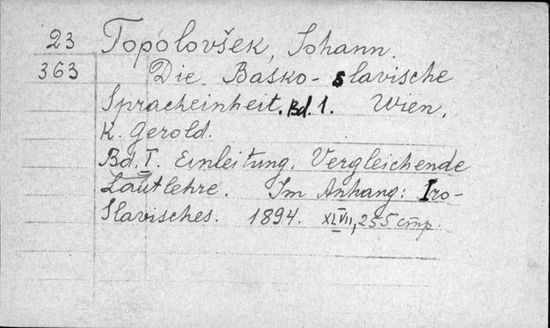 23 Topolovšek, Johann.
363 Die Basko-slavische
Spracheinheit. Bd. 1. Wien,
K. Gerold.
Bd. I. Einleitung. Vergleichende
Lautlehre. Im Anhang: Iro-
Slavisches. 1894. XLVII, 255 стр.